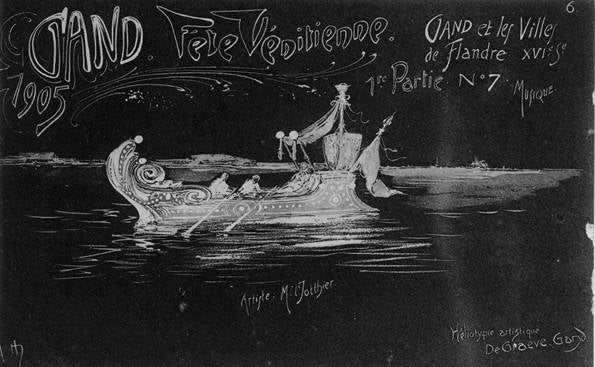 GAND. Fête Vénitienne.
1905
6.
GAND et les Villes
de Flandre XVIe Se
1re Partie N°7.
Musique.
Artiste. M.
Héliotypie artistique
De Graeve. Gand.